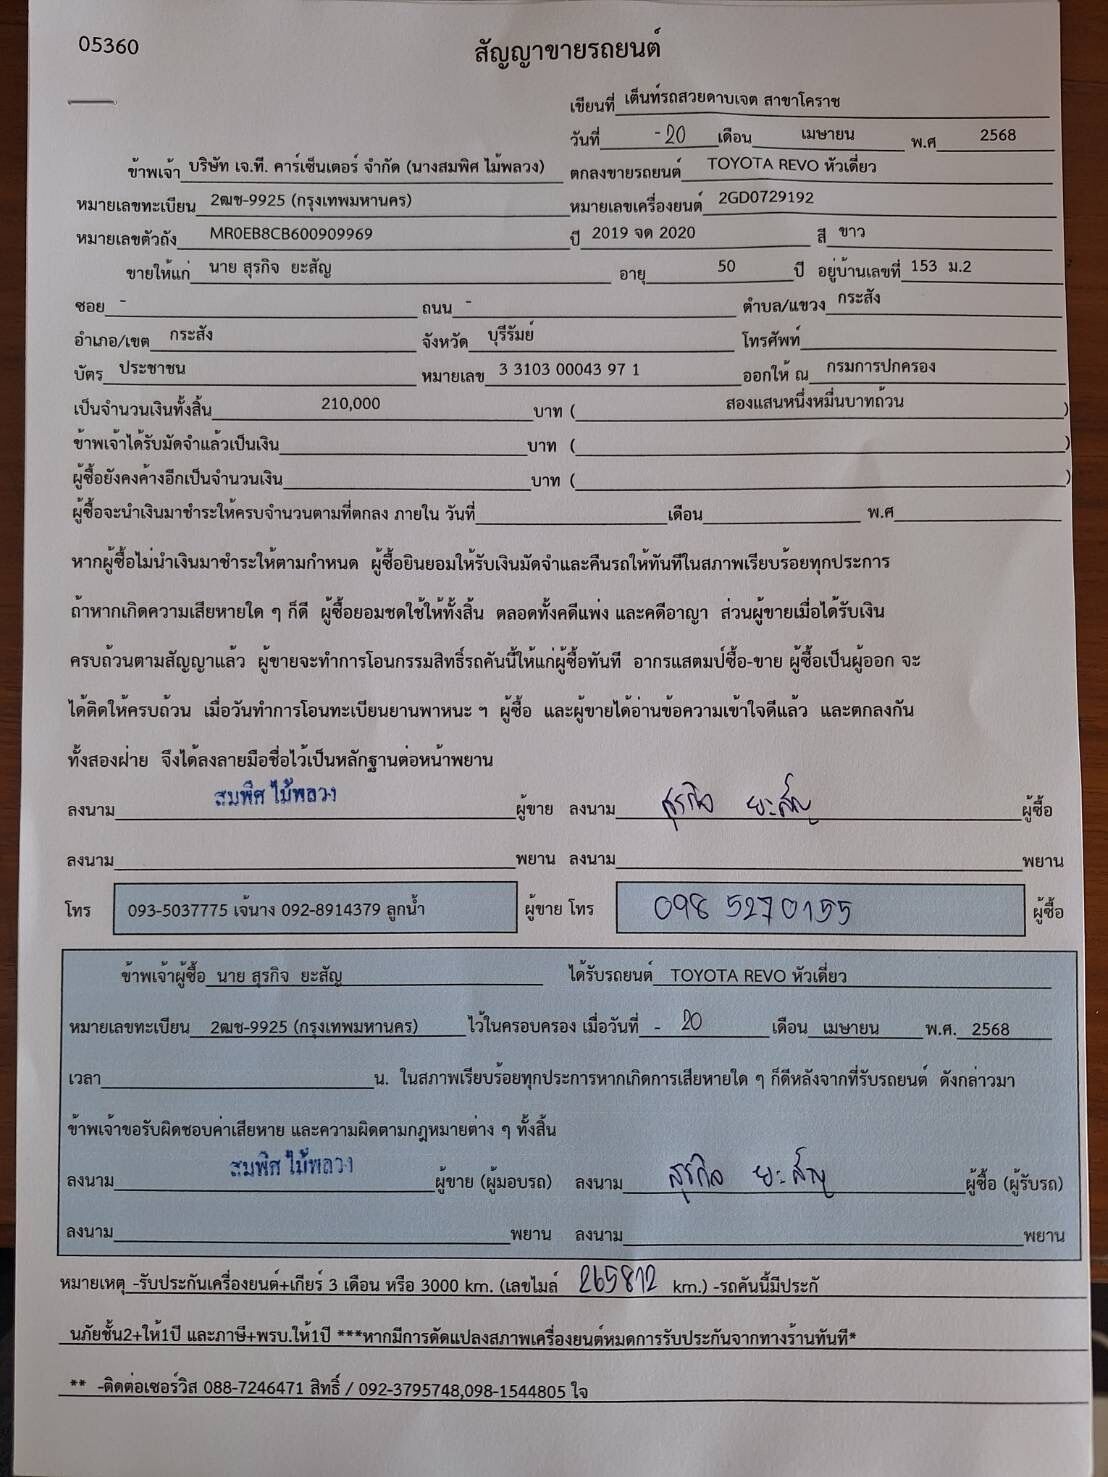 05360
สัญญาขายรถยนต์
เขียนที่ เต็นท์รถสวยดาบเจต สาขาโคราช
วันที่ -20 เดือน เมษายน พ.ศ 2568
ข้าพเจ้า บริษัท เจ.ที. คาร์เซ็นเตอร์ จำกัด (นางสมพิศ ไม้พลวง) ตกลงขายรถยนต์ TOYOTA REVO หัวเดี่ยว
หมายเลขทะเบียน 2ฒช-9925 (กรุงเทพมหานคร) หมายเลขเครื่องยนต์ 2GD0729192
หมายเลขตัวถัง MR0EB8CB600909969 ปี 2019 จด 2020 สี ขาว
ขายให้แก่ นาย สุรกิจ ยะสัญ อายุ 50 ปี อยู่บ้านเลขที่ 153 ม.2
ซอย - ถนน - ตำบล/แขวง กระสัง
อำเภอ/เขต กระสัง จังหวัด บุรีรัมย์ โทรศัพท์
บัตร ประชาชน หมายเลข 3 3103 00043 97 1 ออกให้ ณ กรมการปกครอง
เป็นจำนวนเงินทั้งสิ้น 210,000 บาท ( สองแสนหนึ่งหมื่นบาทถ้วน )
ข้าพเจ้าได้รับมัดจำแล้วเป็นเงิน บาท ( )
ผู้ซื้อยังคงค้างอีกเป็นจำนวนเงิน บาท ( )
ผู้ซื้อจะนำเงินมาชำระให้ครบจำนวนตามที่ตกลง ภายใน วันที่ เดือน พ.ศ
หากผู้ซื้อไม่นำเงินมาชำระให้ตามกำหนด ผู้ซื้อยินยอมให้รับเงินมัดจำและคืนรถให้ทันทีในสภาพเรียบร้อยทุกประการ
ถ้าหากเกิดความเสียหายใด ๆ ก็ดี ผู้ซื้อยอมชดใช้ให้ทั้งสิ้น ตลอดทั้งคดีแพ่ง และคดีอาญา ส่วนผู้ขายเมื่อได้รับเงิน
ครบถ้วนตามสัญญาแล้ว ผู้ขายจะทำการโอนกรรมสิทธิ์รถคันนี้ให้แก่ผู้ซื้อทันที อากรแสตมป์ซื้อ-ขาย ผู้ซื้อเป็นผู้ออก จะ
ได้ติดให้ครบถ้วน เมื่อวันทำการโอนทะเบียนยานพาหนะ ฯ ผู้ซื้อ และผู้ขายได้อ่านข้อความเข้าใจดีแล้ว และตกลงกัน
ทั้งสองฝ่าย จึงได้ลงลายมือชื่อไว้เป็นหลักฐานต่อหน้าพยาน
ลงนาม สมพิศ ไม้พลวง ผู้ขาย ลงนาม สุรกิจ ยะสัญ ผู้ซื้อ
ลงนาม พยาน ลงนาม พยาน
โทร 093-5037775 เจ้นาง 092-8914379 ลูกน้ำ ผู้ขาย โทร 098 5270155 ผู้ซื้อ
ข้าพเจ้าผู้ซื้อ นาย สุรกิจ ยะสัญ ได้รับรถยนต์ TOYOTA REVO หัวเดี่ยว
หมายเลขทะเบียน 2ฒช-9925 (กรุงเทพมหานคร) ไว้ในครอบครอง เมื่อวันที่ - 20 เดือน เมษายน พ.ศ. 2568
เวลา น. ในสภาพเรียบร้อยทุกประการหากเกิดการเสียหายใด ๆ ก็ดีหลังจากที่รับรถยนต์ ดังกล่าวมา
ข้าพเจ้าขอรับผิดชอบค่าเสียหาย และความผิดตามกฎหมายต่าง ๆ ทั้งสิ้น
ลงนาม สมพิศ ไม้พลวง ผู้ขาย (ผู้มอบรถ) ลงนาม สุรกิจ ยะสัญ ผู้ซื้อ (ผู้รับรถ)
ลงนาม พยาน ลงนาม พยาน
หมายเหตุ -รับประกันเครื่องยนต์+เกียร์ 3 เดือน หรือ 3000 km. (เลขไมล์ 265812 km.) -รถคันนี้มีประกั
นภัยชั้น2+ให้1ปี และภาษี+พรบ.ให้1ปี ***หากมีการดัดแปลงสภาพเครื่องยนต์หมดการรับประกันจากทางร้านทันที*
** -ติดต่อเซอร์วิส 088-7246471 สิทธิ์ / 092-3795748,098-1544805 ใจ